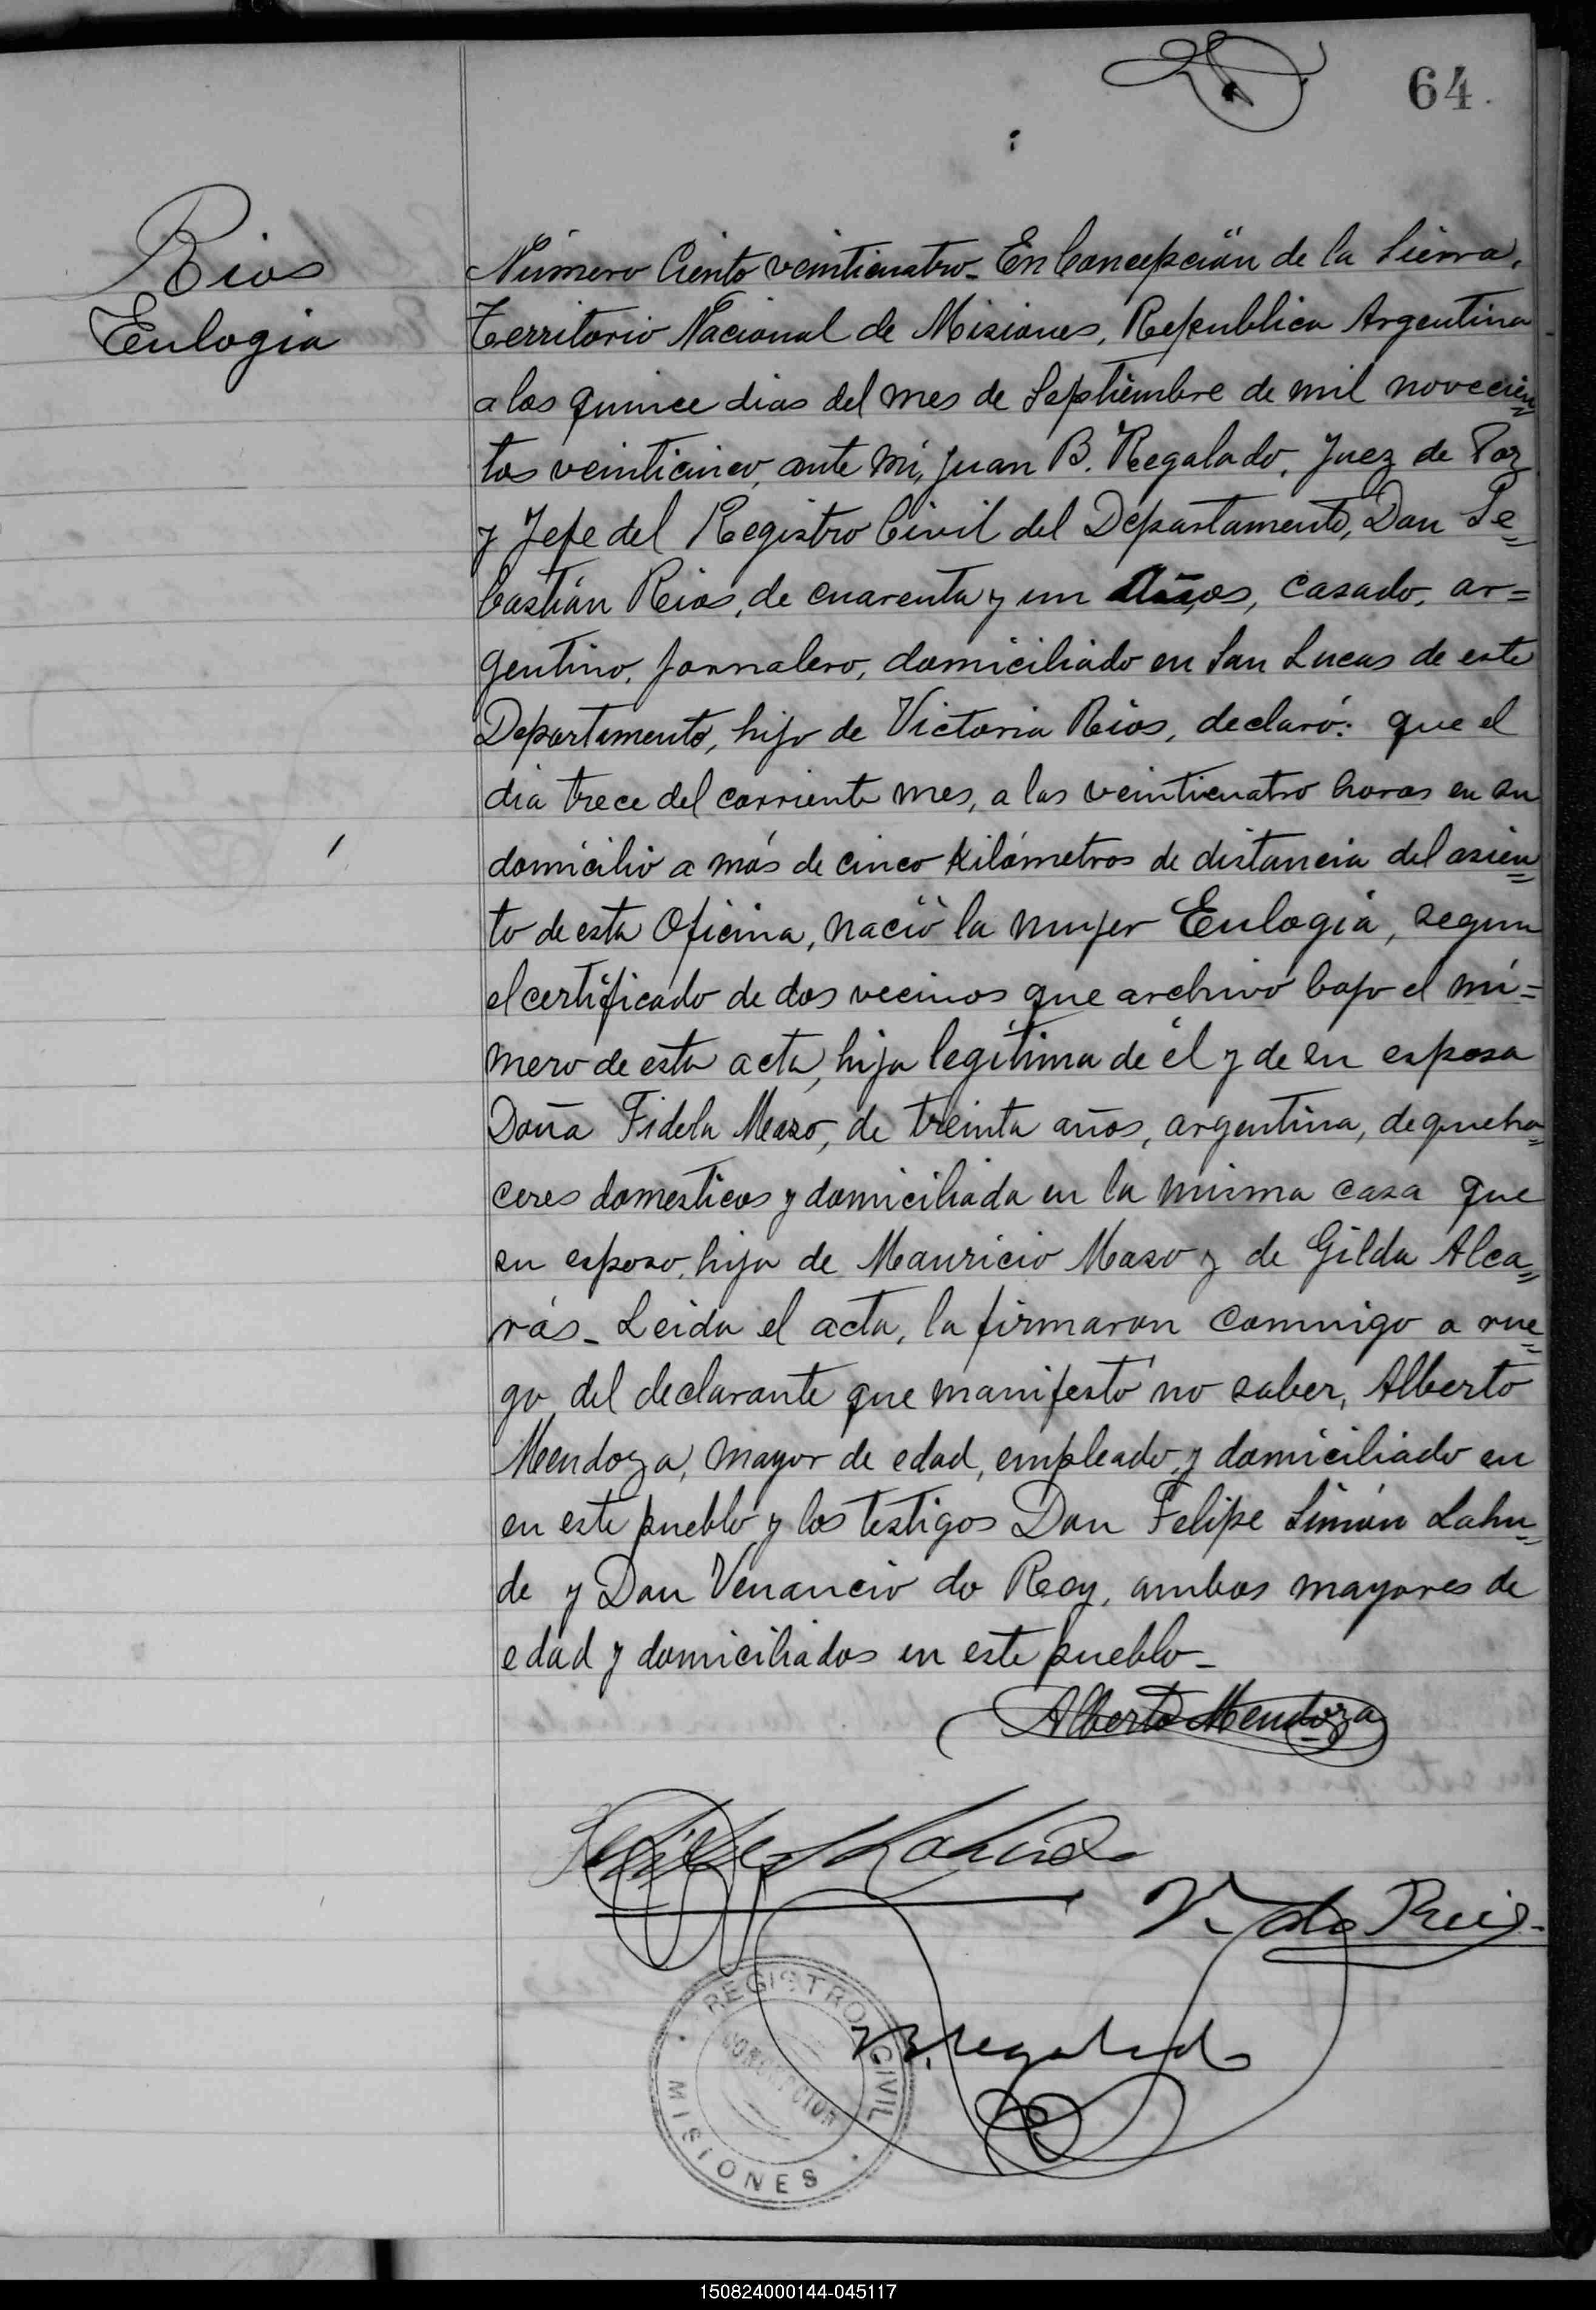 64.
Rios
Eulogia
Número Ciento veinticuatro_ En Concepción de la Sierra,
Territorio Nacional de Misiones, Republica Argentina
a los quince dias del mes de Septiembre de mil novecien=
tos veinticinco, ante mí, Juan B. Regalado, Juez de Paz
y Jefe del Registro Civil del Departamento, Don Se=
bastián Rios, de cuarenta y un años, casado, ar=
gentino, jornalero, domiciliado en San Lucas de este
Departamento, hijo de Victoria Rios, declaró: que el
dia trece del corriente mes, a las veinticuatro horas en su
domicilio a más de cinco Kilómetros de distancia del asien=
to de esta Oficina, nació la mujer Eulogia, segun
el certificado de dos vecinos que archivo bajo el nú=
mero de esta acta, hija legítima de él y de su esposa
Doña Fidela Maso, de treinta años, argentina, de queha=
ceres domesticos y domiciliada en la misma casa que
su esposo, hija de Mauricio Maso y de Gilda Alca=
rás_ Leida el acta, la firmaron conmigo a rue=
go del declarante que manifestó no saber, Alberto
Mendoza, mayor de edad, empleado, y domiciliado en
en este pueblo y los testigos Don Felipe Simón Lahu=
de y Don Venancio do Rey, ambos mayores de
edad y domiciliados en este pueblo_
Alberto Mendoza
V. do Reis
B. Regalado
REGISTRO CIVIL
CONCEPCION
MISIONES
150824000144-045117